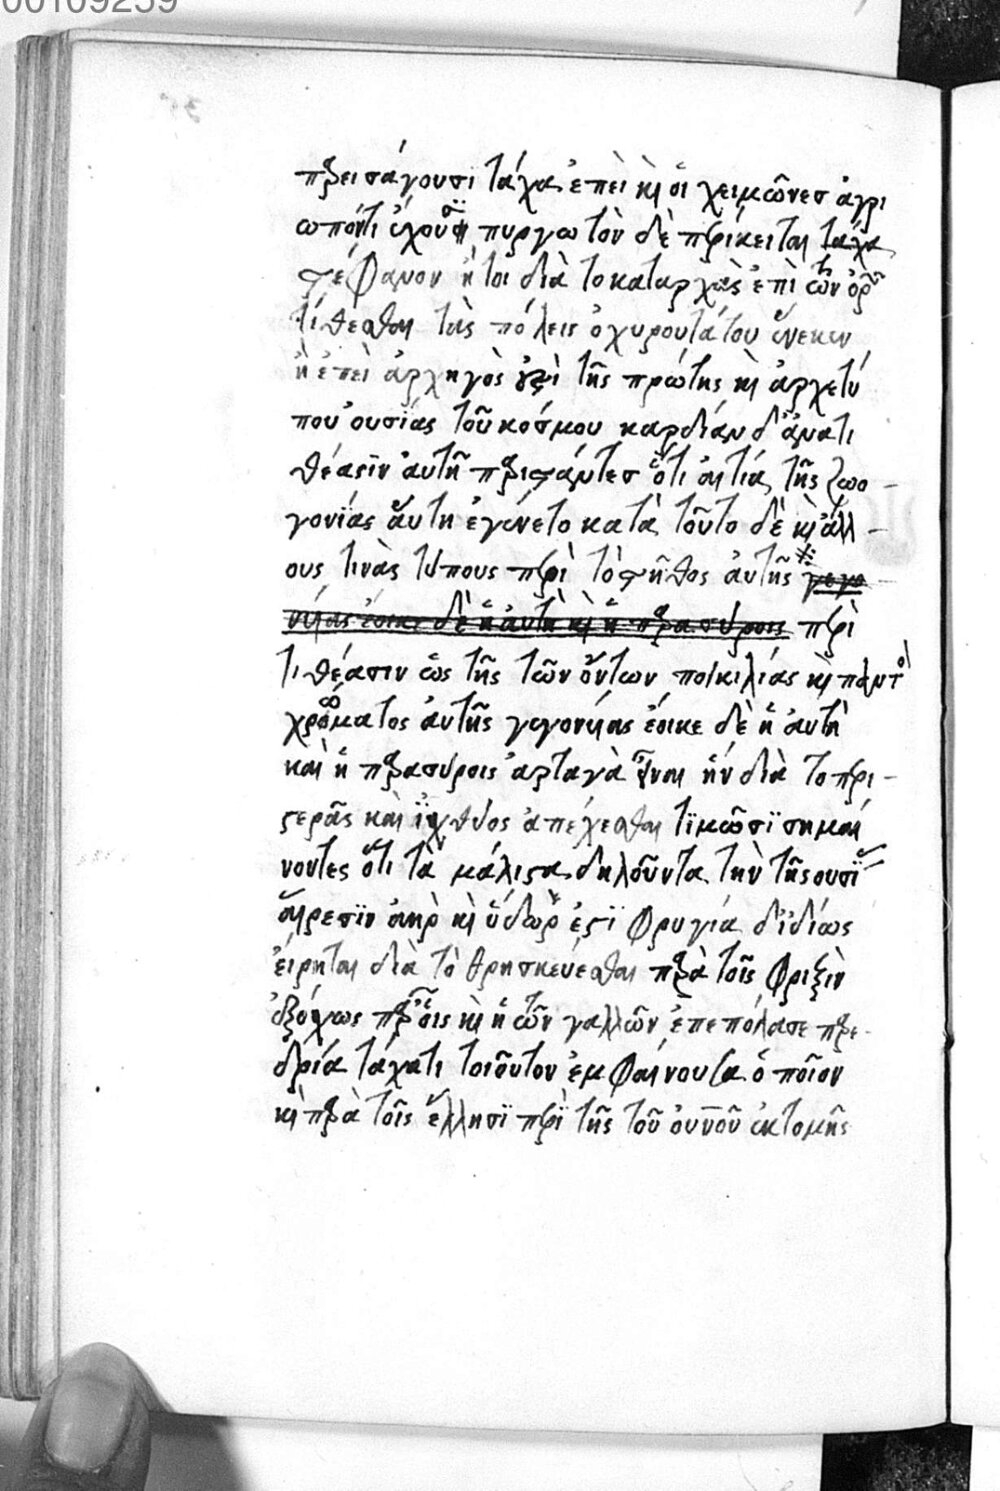 00109259
παρεισάγουσϊ τάχα ἐπεὶ καὶ ὁι χειμῶνες ἀγρι
ωπόν τι ἔχουσι πυργωτὸν δὲ περίκειται τάχα
στέφανον ἤτοι διὰ τὸ καταρχὰς ἐπὶ τῶν ὀρῶν
τίθεσθαι τὰς πόλεις ὀχυρότατου ἕνεκεν
ἢ ἐπεὶ ἀρχηγὸς ἐστὶ τῆς πρώτης καὶ ἀρχετύ
που ὀυσίας τοῦ κόσμου καρδίαν δ' ἀνατι
θέασϊν ἀυτῆ παριστάντες ὅτι αἰτία τῆς ζωο -
γονΐας ἅυτη ἐγένετο κατὰ τοῦτο δὲ καὶ ἄλλ -
ους τινὰς τύπους περὶ τὸ στῆθος ἀυτῆς γεγο
νείας ἔοικε δὲ ἡ ἀυτὴ καὶ ἡ παρα σύροις περὶ
τιθέασιν ὡς τῆς τῶν ὄντων ποικιλίας καὶ παντὸς
χρώματος ἀυτῆς γεγονείας ἔοικε δὲ ἡ ἀυτὴ
καὶ ἡ παρασύροις ἀρταγὰ εἶναι ἣν διὰ τὸ περι -
στερᾶς καὶ ἰχθύος ἀπέχεσθαι τϊμῶσϊ σημαί
νοντες ὅτι τὰ μάλιστα δηλοῦντα τὴν τῆς ουσΐας
ἅιρεσϊν ἀὴρ καὶ ὕδωρ ἐστϊ φρυγία δ' ἰδίως
ἐίρηται διὰ τὸ θρησκεύεσθαι παρὰ τοῖς φριξὶν
ἐξόχως παρ' οἷς καὶ ἡ τῶν γαλλῶν ἐπεπόλασε παρε -
δρία τάχα τι τοιοῦτον ἐμφαίνουσα ὁποῖον
καὶ παρὰ τοῖς ἕλλησϊ περὶ τῆς τοῦ ὀυνοῦ ἐκτομῆς